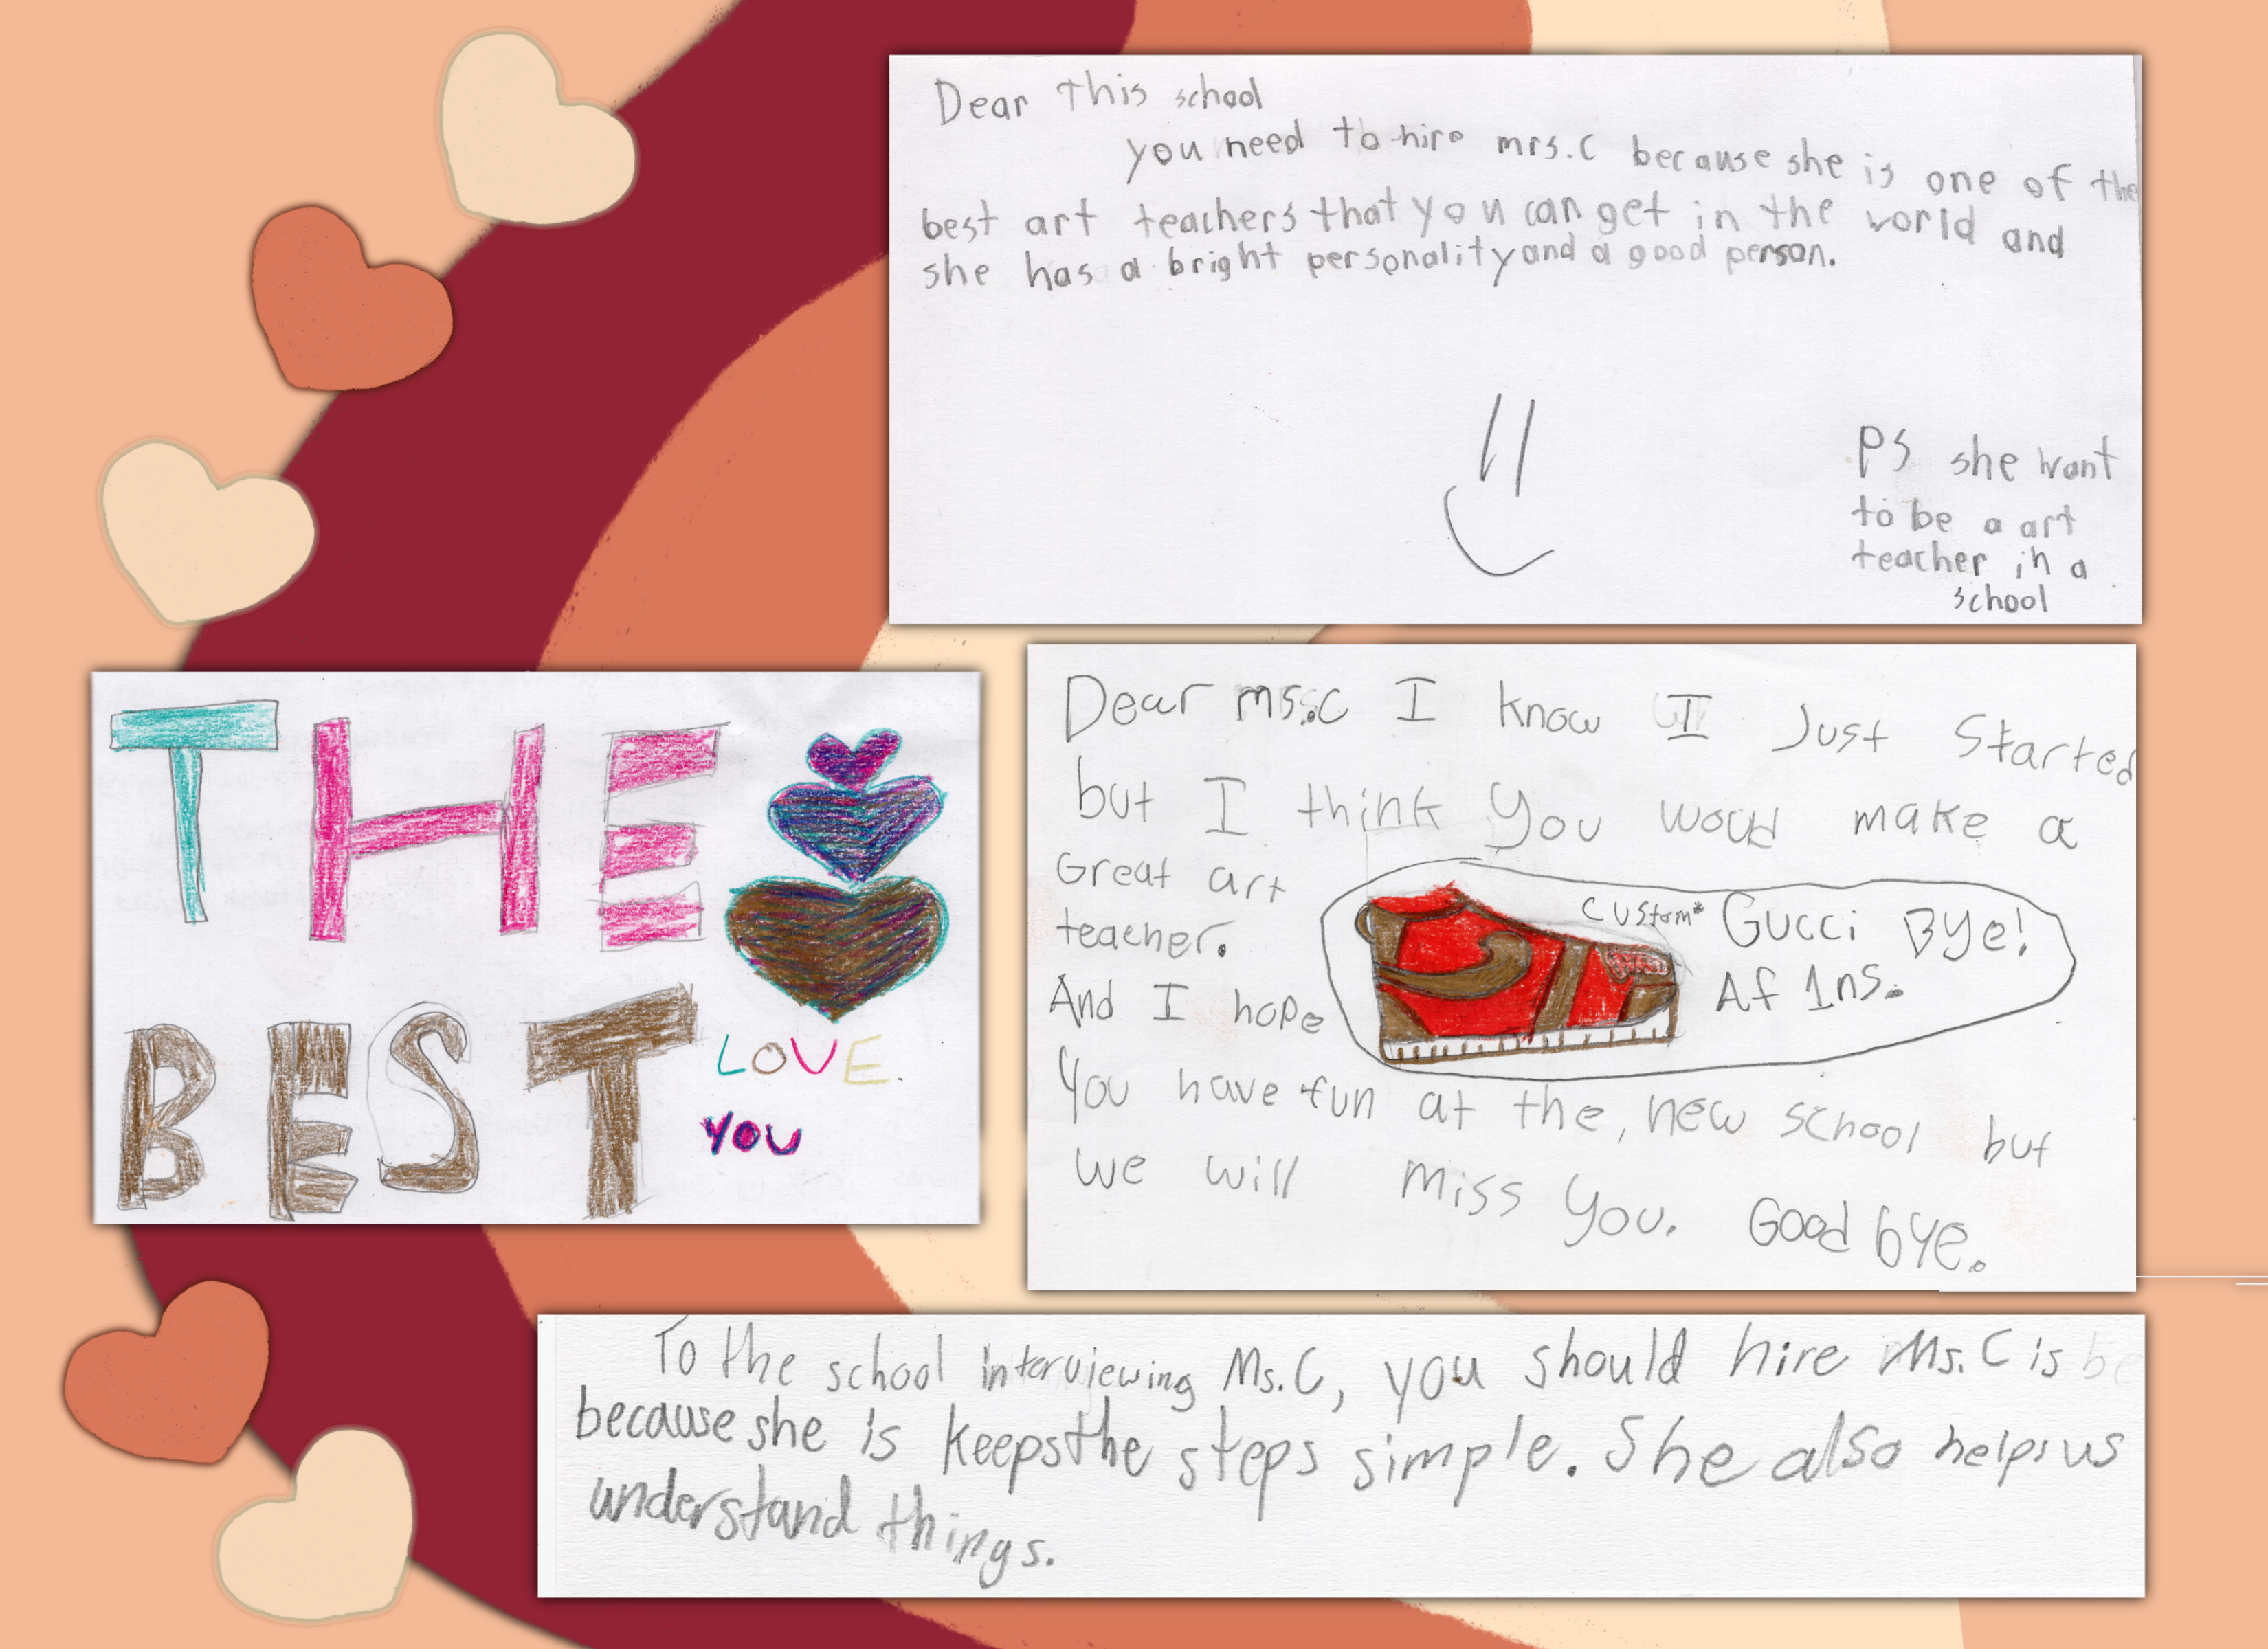 Dear This school
you need to hire mrs.C because she is one of the
best art teachers that you can get in the world and
she has a bright personality and a good person.
PS she want
to be a art
teacher in a
school
THE
BEST
LOVE
YOU
Dear ms.C I know I Just Started
but I think You woud make a
Great art
teacher.
And I hope
custom* Gucci Bye!
Af 1ns.
You have fun at the, new school but
we will miss You. Good bye.
To the school interviewing Ms.C, you should hire Ms. C is be
because she is keeps the steps simple. She also helps us
understand things.